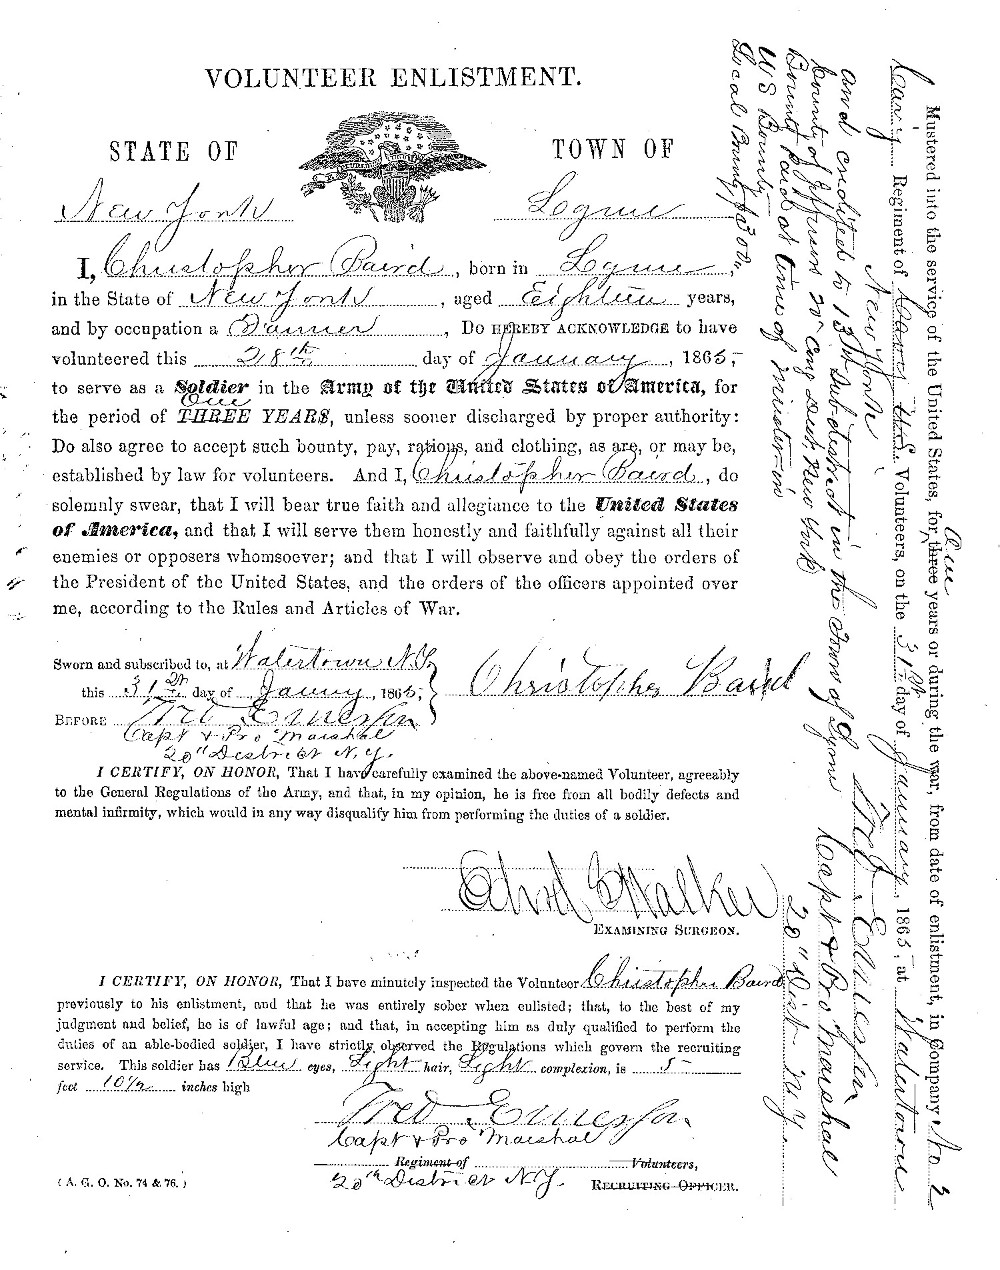 VOLUNTEER ENLISTMENT.
STATE OF
TOWN OF
New York
Lyme
I, Christopher Baird, born in Lyme,
in the State of New York, aged Eighteen years,
and by occupation a Farmer, DO HEREBY ACKNOWLEDGE to have
volunteered this 28th day of January, 1865,
to serve as a Soldier in the Army of the United States of America, for
One
the period of THREE YEARS, unless sooner discharged by proper authority:
Do also agree to accept such bounty, pay, rations, and clothing, as are, or may be,
established by law for volunteers. And I, Christopher Baird, do
solemnly swear, that I will bear true faith and allegiance to the United States
of America, and that I will serve them honestly and faithfully against all their
enemies or opposers whomsoever; and that I will observe and obey the orders of
the President of the United States, and the orders of the officers appointed over
me, according to the Rules and Articles of War.
Sworn and subscribed to, at Watertown N.Y.
this 31st day of January, 1865,
Christopher Baird
BEFORE Fred Emerson
Capt & Pro Marshal
20th District N.Y.
I CERTIFY, ON HONOR, That I have carefully examined the above-named Volunteer, agreeably
to the General Regulations of the Army, and that, in my opinion, he is free from all bodily defects and
mental infirmity, which would in any way disqualify him from performing the duties of a soldier.
Walker
EXAMINING SURGEON.
I CERTIFY, ON HONOR, That I have minutely inspected the Volunteer Christopher Baird
previously to his enlistment, and that he was entirely sober when enlisted; that, to the best of my
judgment and belief, he is of lawful age; and that, in accepting him as duly qualified to perform the
duties of an able-bodied soldier, I have strictly observed the Regulations which govern the recruiting
service. This soldier has Blue eyes, Light hair, Light complexion, is 5
feet 10½ inches high
Fred Emerson
Capt & Pro Marshal
Regiment of Volunteers,
20th District N.Y. RECRUITING OFFICER.
(A. G. O. No. 74 & 76.)
One
Mustered into the service of the United States, for three years or during the war, from date of enlistment, in Company No 2
Regiment of Volunteers, on the 31st day of January, 1865, at Watertown
New York
and credited to 13th Sub-district in the Town of Lyme
County of Jefferson 20" Cong Dist New York
Bounty paid at time of muster-in
US Bounty
Local Bounty
Fred Emerson
Capt & Pro Marshal
20" Dist N.Y.